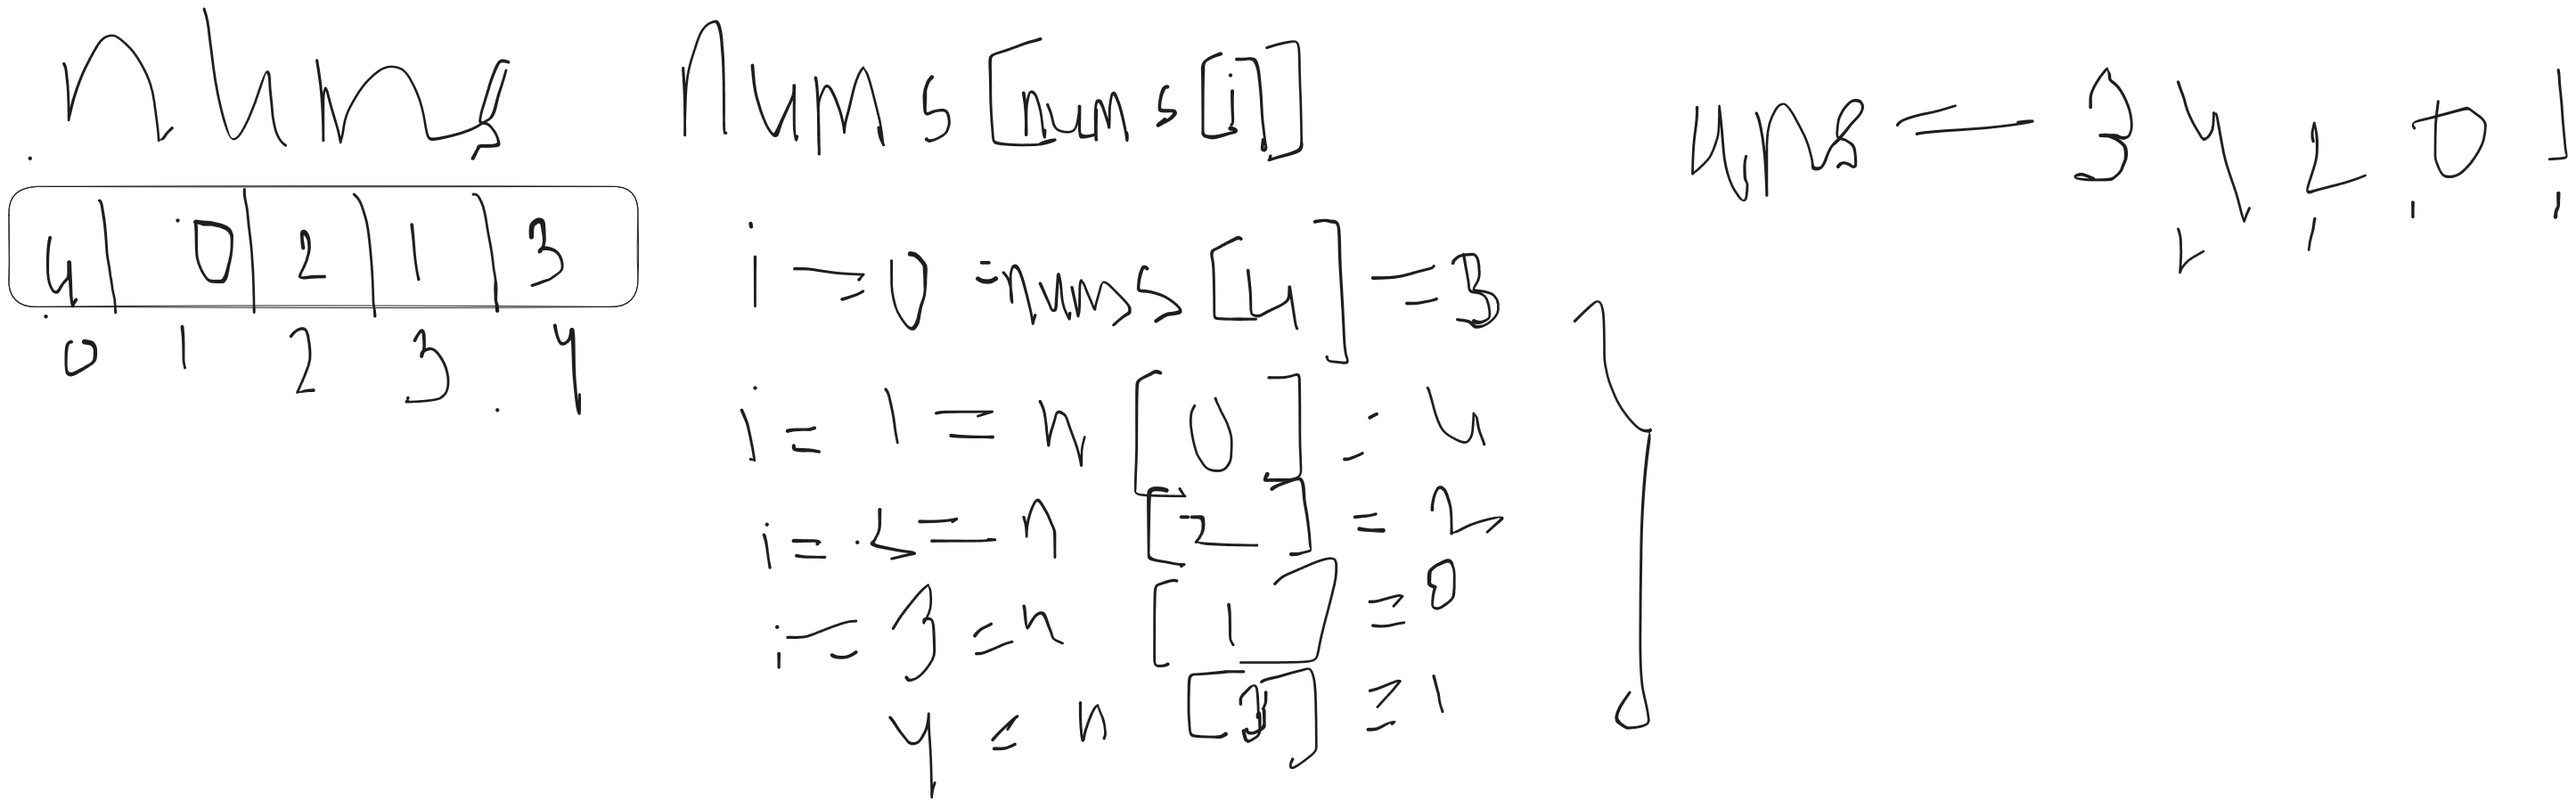 nums
4 0 2 1 3
0 1 2 3 4
nums[nums[i]]
i = 0 = nums[4] = 3
i = 1 = n[0] = 4
i = 2 = n[2] = 2
i = 3 = n[1] = 0
4 = n[3] = 1
ans = 3, 4, 2, 0, 1